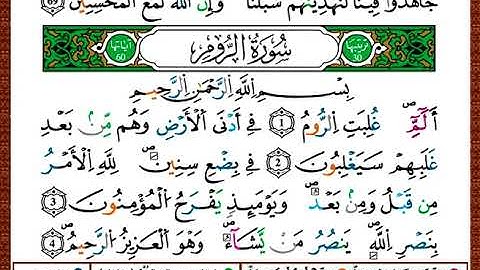 جَاهَدُوا فِينَا لَنَهْدِيَنَّهُمْ سُبُلَنَا ۚ وَإِنَّ اللَّهَ لَمَعَ الْمُحْسِنِينَ 69
ترتيبها 30 سُورَةُ الرُّومِ آياتها 60
بِسْمِ اللَّهِ الرَّحْمَٰنِ الرَّحِيمِ
الٓمٓ ۚ غُلِبَتِ الرُّومُ 1 فِي أَدْنَى الْأَرْضِ وَهُم مِّنۢ بَعْدِ
غَلَبِهِمْ سَيَغْلِبُونَ 2 فِي بِضْعِ سِنِينَ ۗ لِلَّهِ الْأَمْرُ
مِن قَبْلُ وَمِنۢ بَعْدُ ۚ وَيَوْمَئِذٍ يَفْرَحُ الْمُؤْمِنُونَ 3
بِنَصْرِ اللَّهِ ۚ يَنصُرُ مَن يَشَآءُ ۖ وَهُوَ الْعَزِيزُ الرَّحِيمُ 4